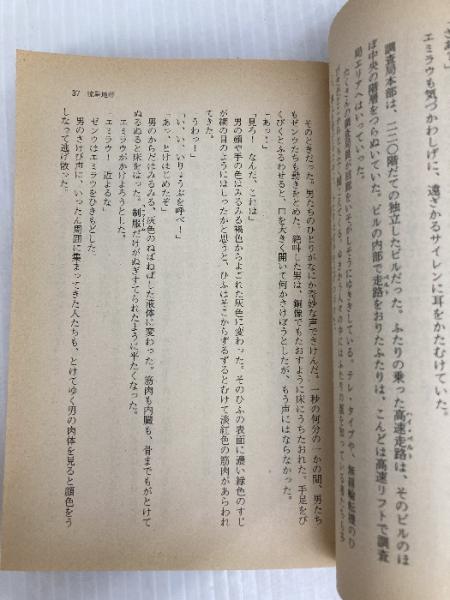 さあ。」
エミラウも気づかわしげに、遠ざかるサイレンに耳をかたむけていた。
調査局本部は、二二〇階だての独立したビルだった。ふたりの乗った高速走路は、そのビルのほ
ぼ中央の階層をつらぬいていた。ビルの内部で走路をおりたふたりは、こんどは高速リフトで調査
局エリアへはいっていった。
37
そのときだった。男たちのひとりがなにか奇妙な声でさけんだ。一秒の何分の一かの間、男たち
もゼンウたちも動きをとめた。絶叫した男は、銅像でもたおすように床にうちたおれた。手足をび
くびくとふるわせると、口を大きく開いて何かさけぼうとしたが、もう声にはならなかった。
「あっ！」
「見ろ！　なんだ、これは」
男の顔や手の色はみるみる褐色からよごれた灰色に変わった。そのひふの表面に濃い緑色のすじ
が網の目のようにはしったかと思うと、ひふはそこからずるずるとむけて淡紅色の筋肉があらわれ
てきた。
「うわっ！」
「い、い、いりょうぶを呼べ！」
「あっ、とけはじめたぞ」
男のからだはみるみる、灰色のねばねばした液体に変わった。筋肉も内臓も、骨までもがとけて
ぬるぬると床をはった。制服だけがぬぎすてられたように平たくなった。
エミラウがかけよろうとした。
「エミラウ！　近よるな」
ゼンウはエミラウをひきもどした。
男のさけび声に、いったん周囲に集まってきた人たちも、とけてゆく男の肉体を見ると顔色をう
しなって逃げ散った。